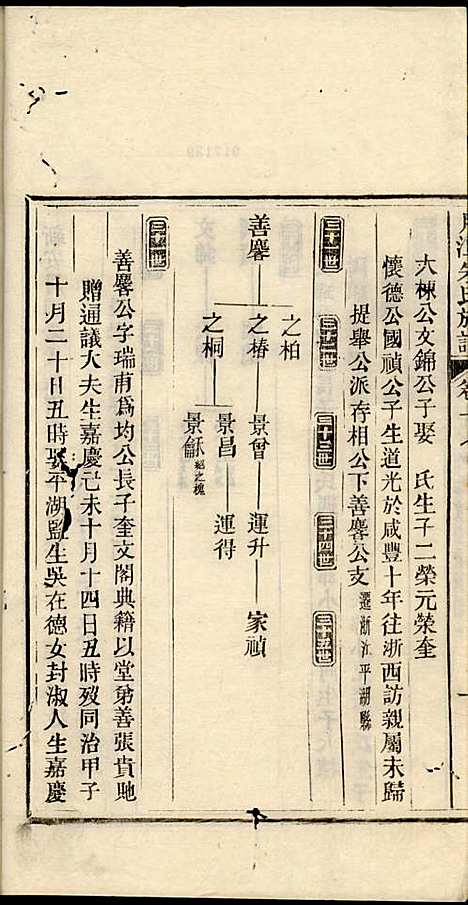 大棟公文錦公子娶　氏生子二榮元榮奎
懷德公國禎公子生道光於咸豐十年往浙西訪親屬未歸
提舉公派存相公下善麐公支遷浙江平湖縣
三十一世　三十二世　三十三世　三十四世　三十五世
之柏
善麐　之椿　景曾　運升　家禎
之桐　景昌　運得
景龢紹之槐
三十一世
善麐公字瑞甫爲均公長子奎文閣典籍以堂弟善張貴貤
贈通議大夫生嘉慶己未十月十四日丑時歿同治甲子
十月二十日丑時娶平湖監生吳在德女封淑人生嘉慶